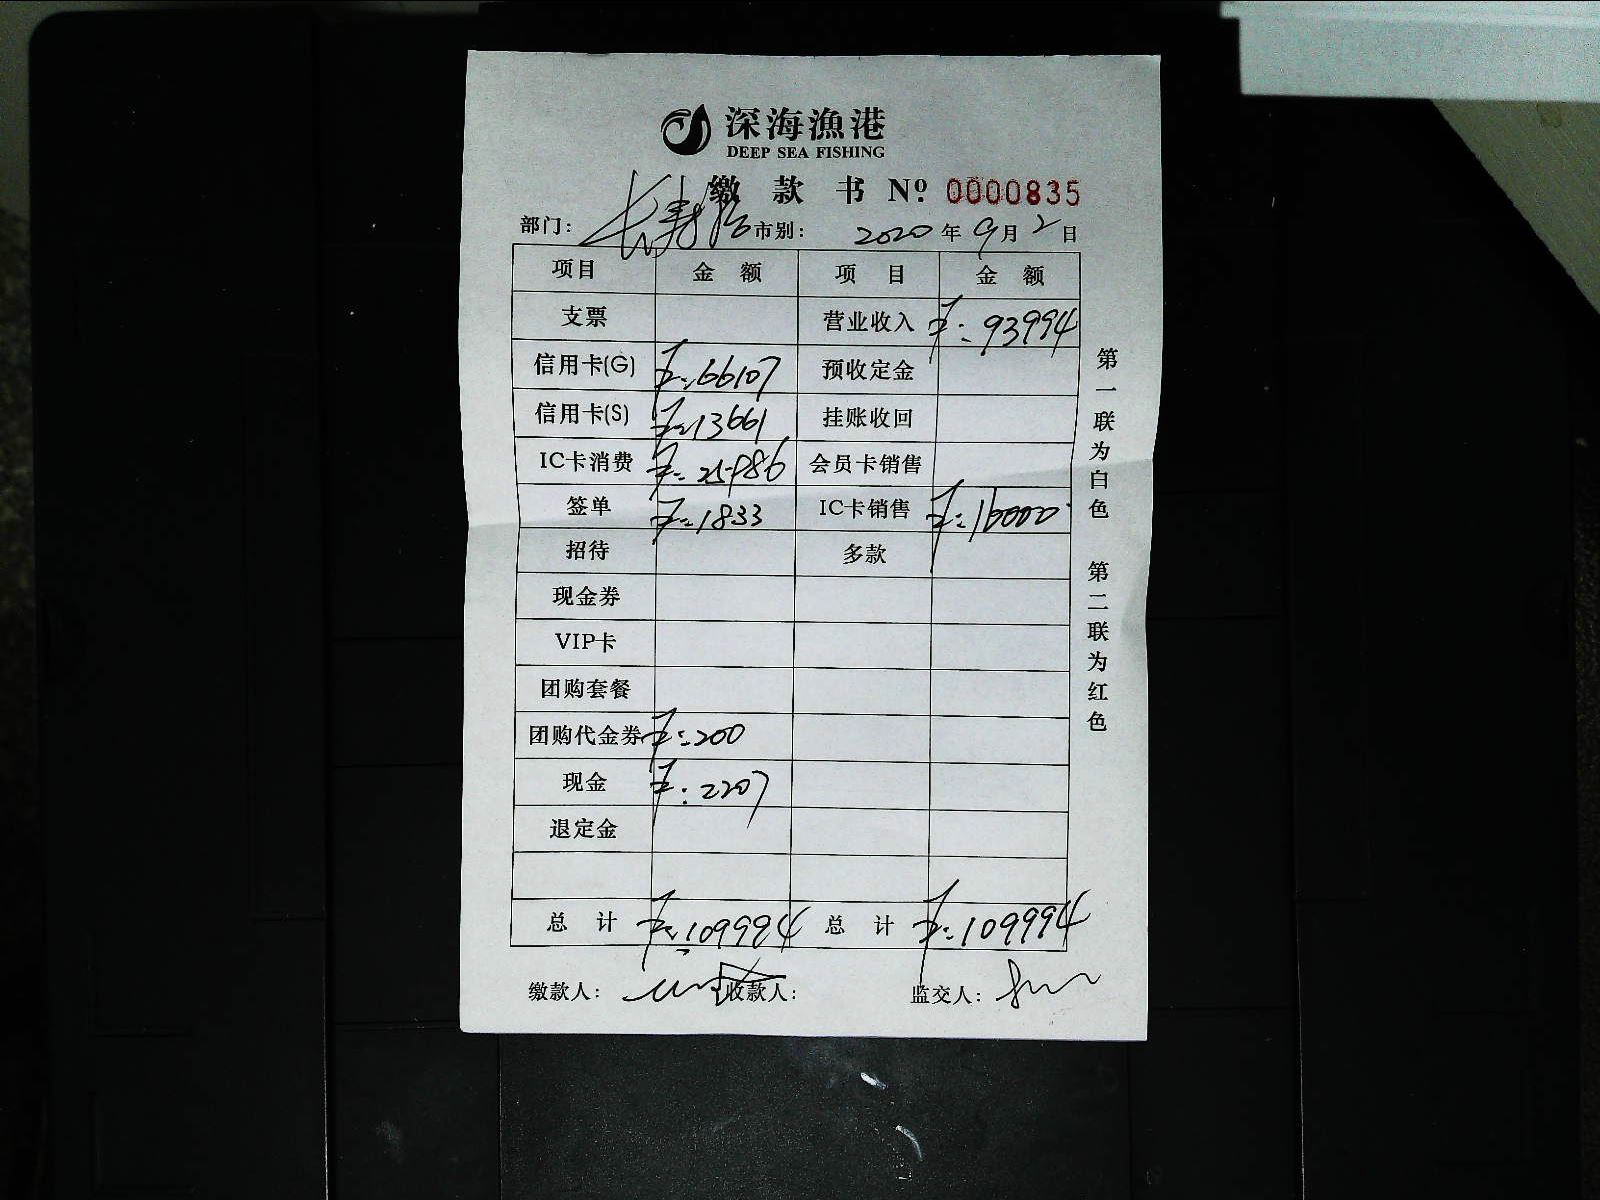 深海漁港
DEEP SEA FISHING
缴款书 Nº: 0000835
部门: 长寿路 市别: 2020年9月2日
项目 金额 项目 金额
支票 营业收入 ¥:93994
信用卡(G) ¥:66107 预收定金
信用卡(S) ¥:13661 挂账收回
IC卡消费 ¥:25986 会员卡销售
签单 ¥:1833 IC卡销售 ¥:16000
招待 多款
现金券
VIP卡
团购套餐
团购代金券 ¥:200
现金 ¥:2207
退定金
总计 ¥:109994 总计 ¥:109994
缴款人: 收款人: 监交人:
第一联为白色 第二联为红色